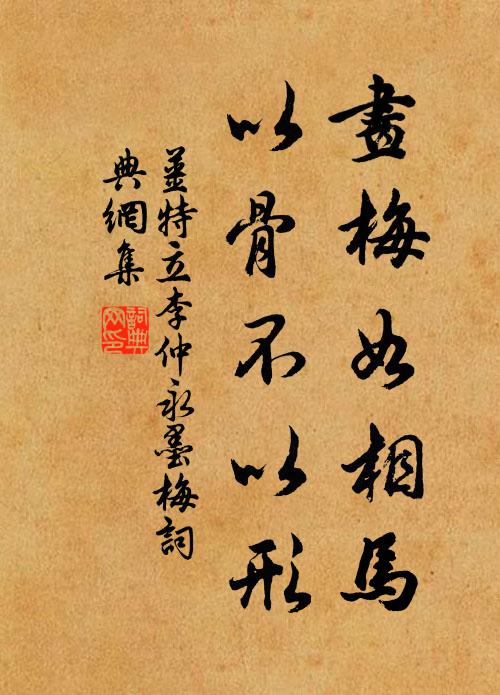 畫梅如相馬
以骨不以形
姜特立李仲永墨梅詞
典網集
詞典
网印